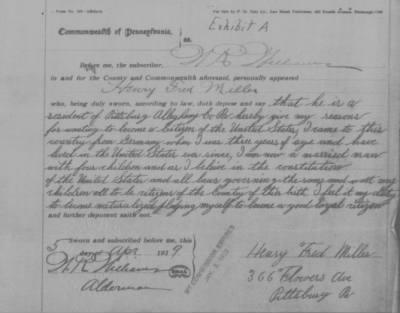 Form No. 100—Affidavit
Exhibit A
Commonwealth of Pennsylvania,
ss.
Before me, the subscriber, W. R.
in and for the County and Commonwealth aforesaid, personally appeared
Henry Fred Miller
who, being duly sworn, according to law, doth depose and say that he is a
resident of Pittsburg Allegheny Co Pa. hereby give my reasons
for wanting to become a Citizen of the United States, I came to this
country from Germany when I was three years of age and have
lived in the United States ever since, I am now a married man
with four children and as I believe in the constitution
of the United States and all laws governing the same and want my
children all to be citizens of the Country of their birth I feel it my duty
to become naturalized pledging myself to become a good loyal citizen
and further deponent saith not.
Sworn and subscribed before me, this
3 day of Apr 1939
W. R.
Alderman
SEAL
MY COMMISSION EXPIRES
Henry Fred Miller
366 Flowers Ave
Pittsburg Pa